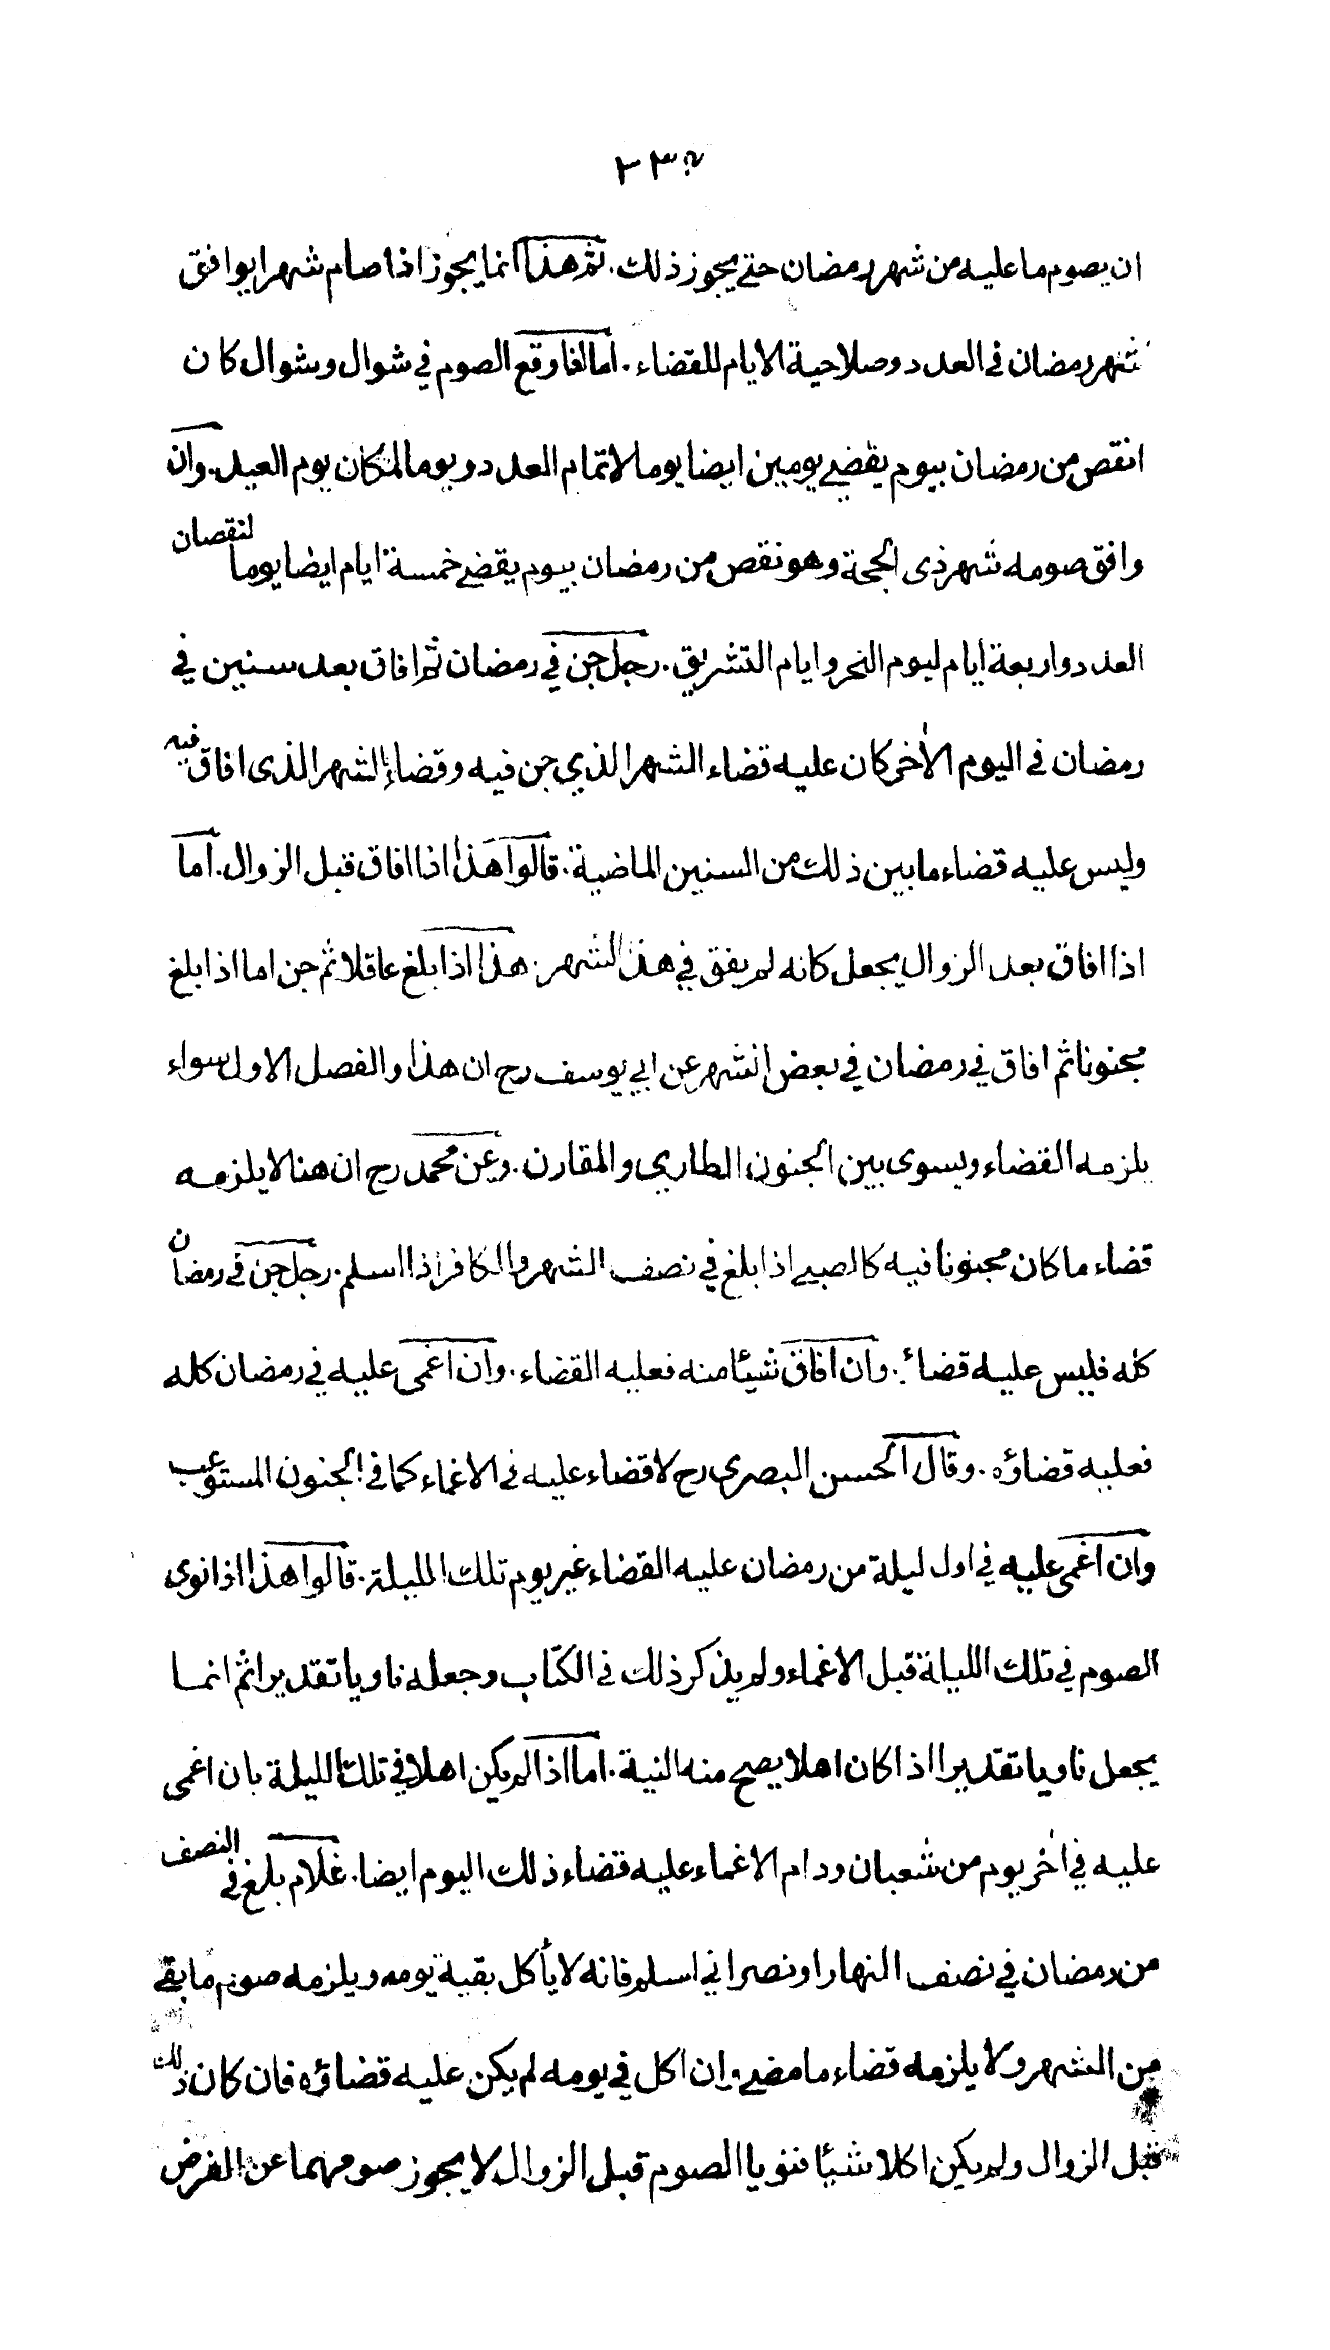 ٢٣٥
ان يصوم ما عليه من شهر رمضان حتى يجوز ذلك. ثم هذا انما يجوز اذا صام شهرا يوافق
شهر رمضان في العدد وصلاحية الايام للقضاء. اما الغا وقع الصوم في شوال وشوال كان
انقص من رمضان بيوم يقضي يومين ايضا يوما لاتمام العدد ويوما لمكان يوم العيد. وان
وافق صومه شهر ذى الحجة وهو نقص من رمضان بيوم يقضى خمسة ايام ايضا يوما لنقصان
العدد واربعة ايام ليوم النحر وايام التشريق. رجل جن في رمضان ثم افاق بعد سنين في
رمضان في اليوم الأخر كان عليه قضاء الشهر الذي جن فيه وقضاء الشهر الذى افاق فيه
وليس عليه قضاء ما بين ذلك من السنين الماضية. قالوا هذا اذا افاق قبل الزوال. اما
اذا افاق بعد الزوال يجعل كانه لم يفق في هذا الشهر. هذا اذا بلغ عاقلا ثم جن اما اذا بلغ
مجنونا ثم افاق في رمضان في بعض الشهر عن ابي يوسف رح ان هذا والفصل الاول سواء
يلزمه القضاء ويسوى بين الجنون الطاري والمقارن. وعن محمد رح ان هنا لا يلزمه
قضاء ما كان مجنونا فيه كالصبي اذا بلغ في نصف الشهر والكافر اذا اسلم. رجل جن في رمضان
كله فليس عليه قضاء. وان افاق شيئا منه فعليه القضاء. وان اغمى عليه في رمضان كله
فعليه قضاؤه. وقال الحسن البصري رح لا قضاء عليه في الاغماء كما في الجنون المستوعب
وان اغمى عليه في اول ليلة من رمضان عليه القضاء غير يوم تلك الليلة. قالوا هذا اذا نوى
الصوم في تلك الليلة قبل الاغماء ولم يذكر ذلك في الكتاب وجعله ناويا تقديرا ثم انما
يجعل ناويا تقديرا اذا كان اهلا يصح منه النية. اما اذا لم يكن اهلا في تلك الليلة بان اغمى
عليه في أخر يوم من شعبان ودام الاغماء عليه قضاء ذلك اليوم ايضا. غلام بلغ في النصف
من رمضان في نصف النهار او نصراني اسلم فانه لا يأكل بقية يومه ويلزمه صوم ما بقي
من الشهر ولا يلزمه قضاء ما مضى وان اكل في يومه لم يكن عليه قضاؤه فان كان ذلك
قبل الزوال ولم يكن اكلا شيئا فنويا الصوم قبل الزوال لا يجوز صومهما عن الفرض